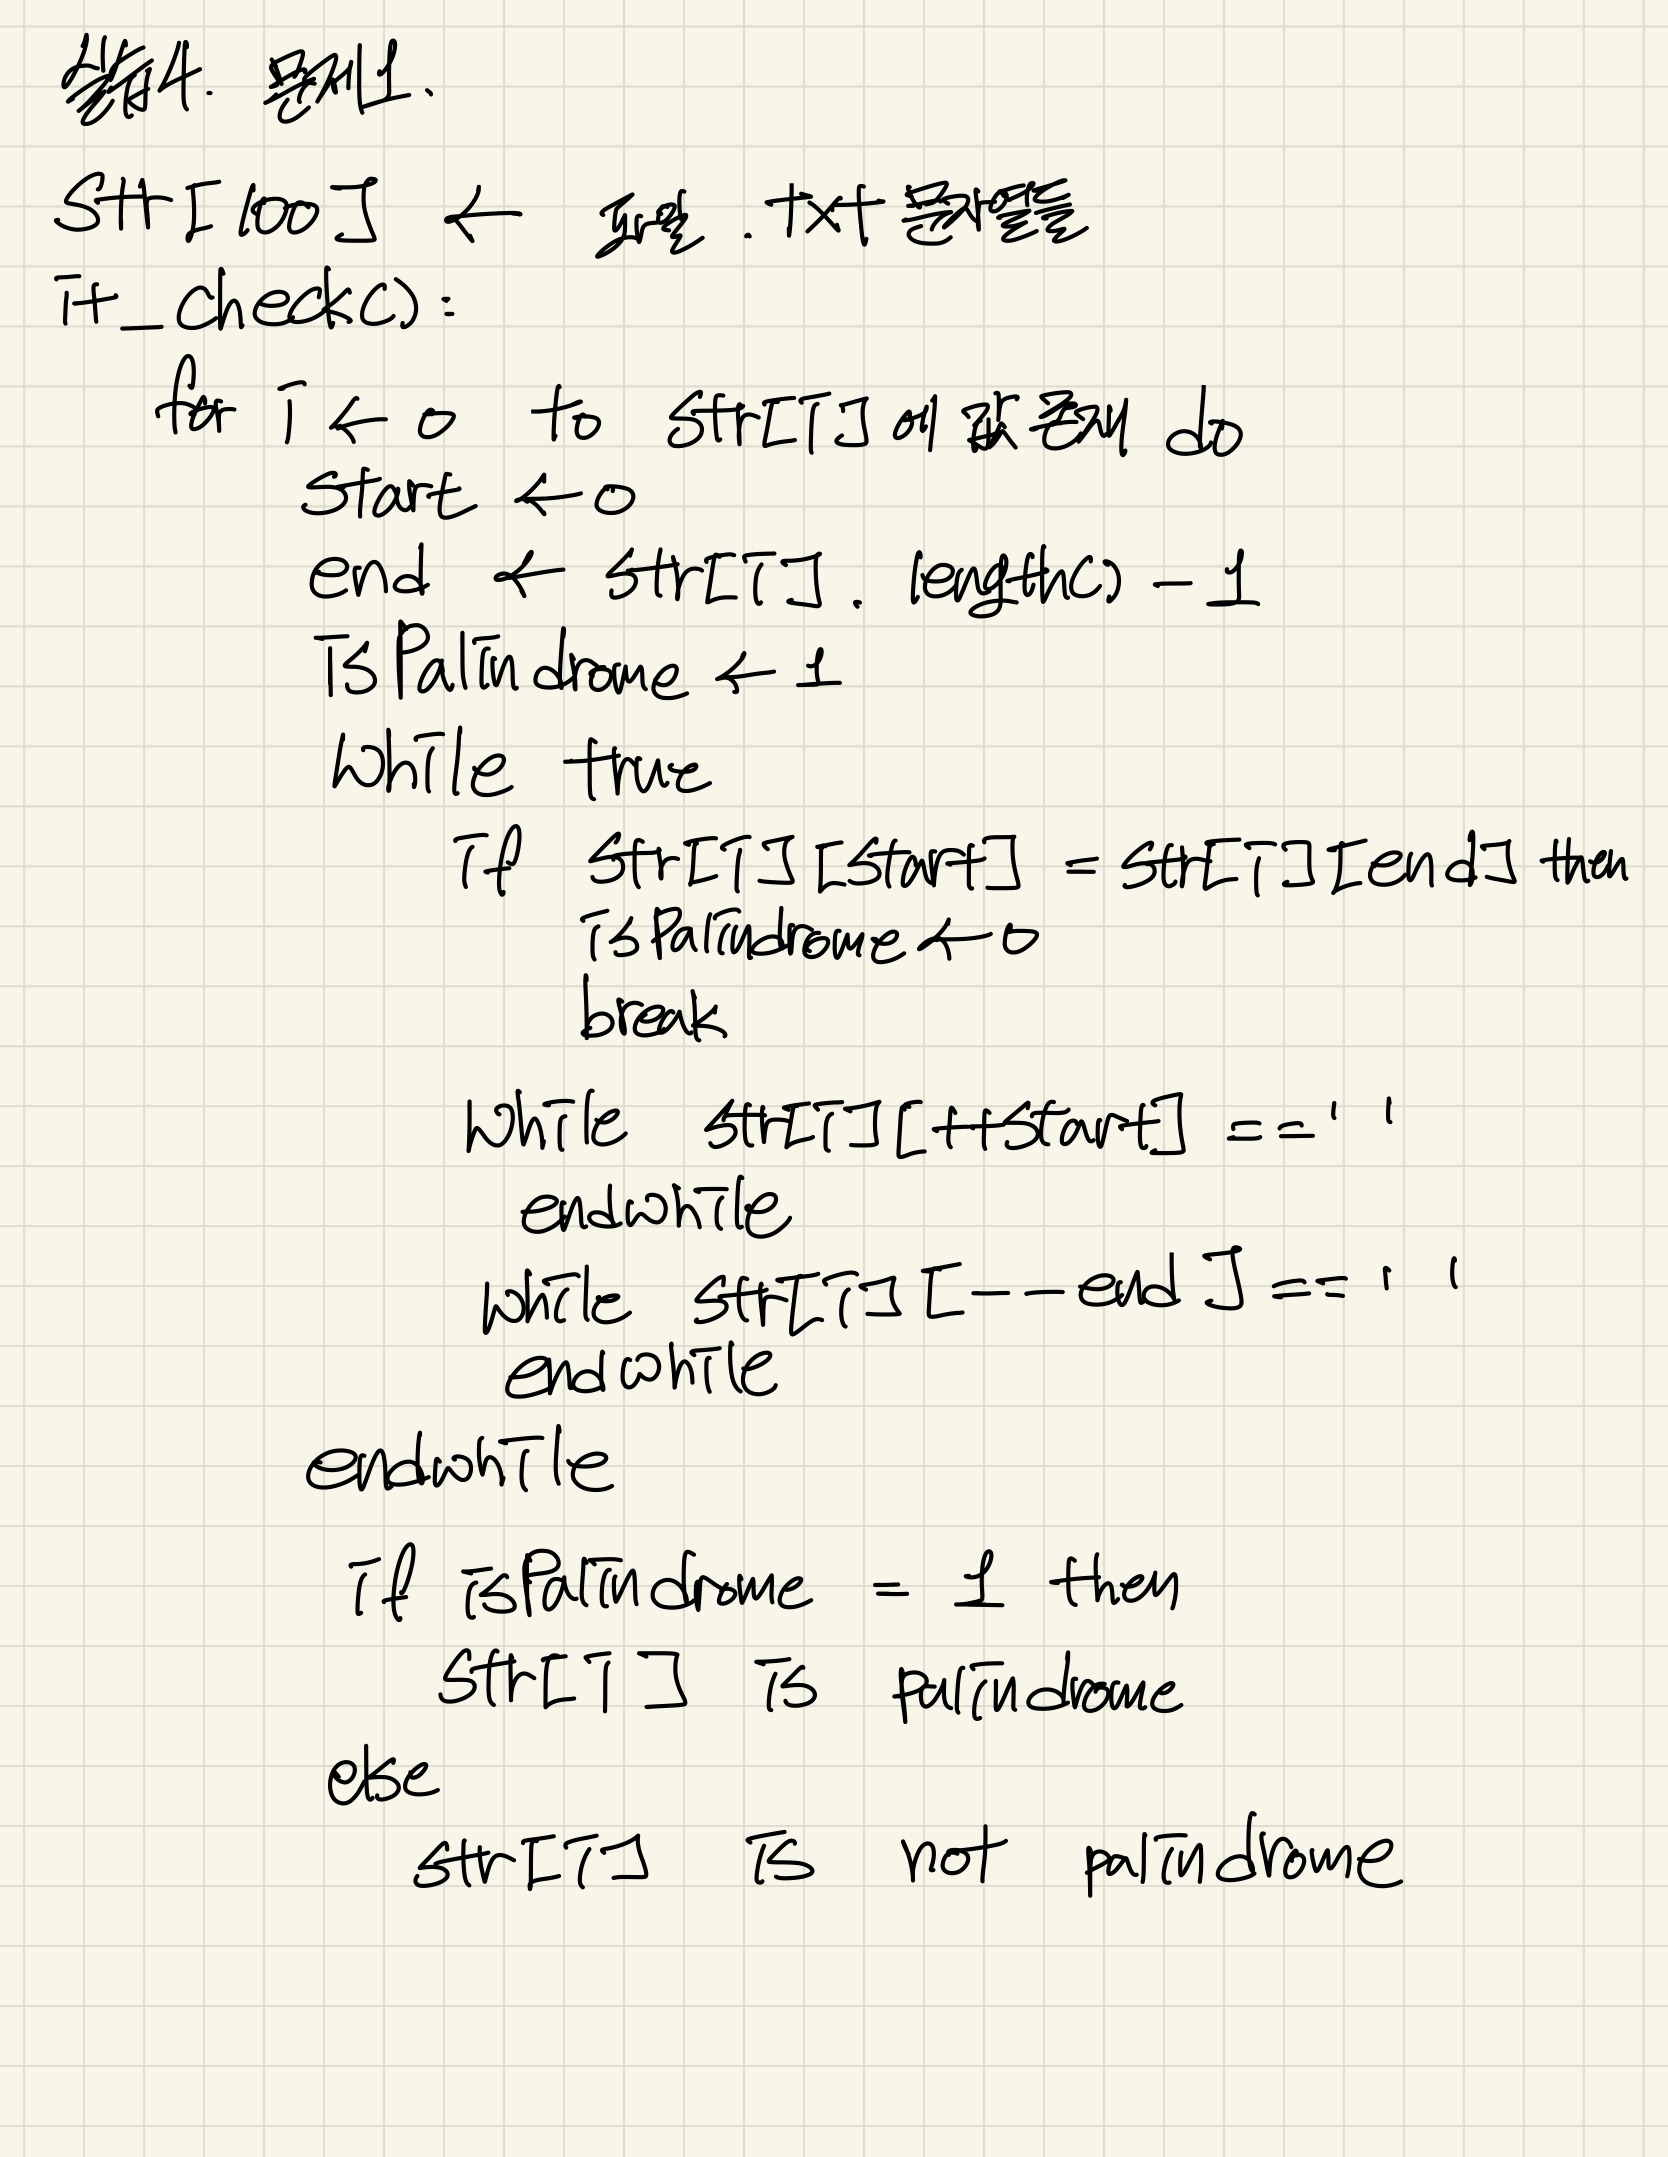 실습4. 문제1.
Str[100] ← 파일.txt 문자열들
it_check():
for i ← 0 to str[i]에 값 존재 do
start ← 0
end ← str[i].length() - 1
isPalindrome ← 1
while true
if str[i][start] = str[i][end] then
isPalindrome ← 0
break
while str[i][++start] == ' '
endwhile
while str[i][--end] == ' '
endwhile
endwhile
if isPalindrome = 1 then
str[i] is palindrome
else
str[i] is not palindrome